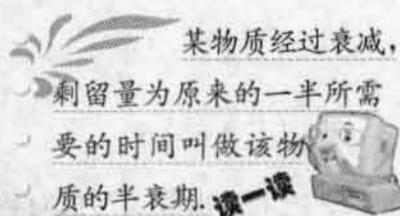 某物质经过衰减,
剩留量为原来的一半所需
要的时间叫做该物
质的半衰期.
读一读